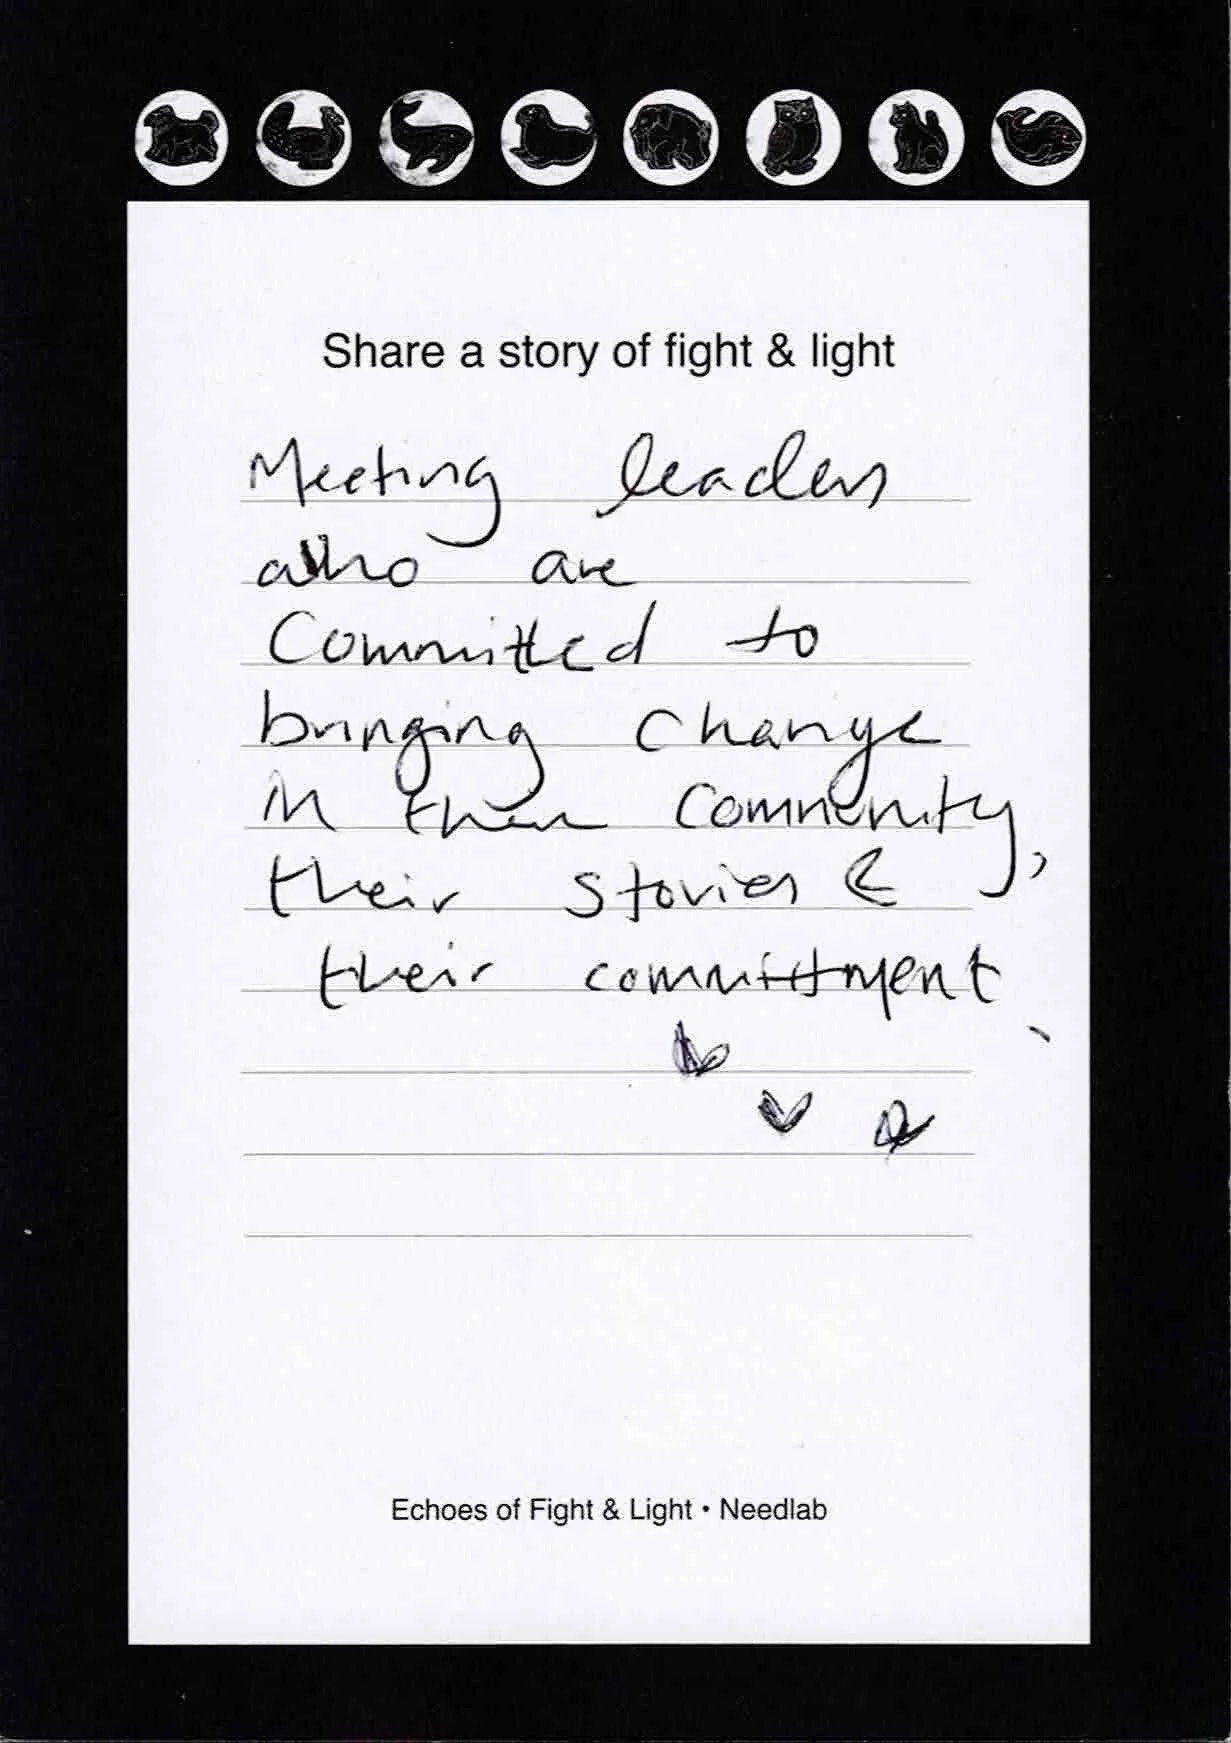 Share a story of fight & light
Meeting leaders
who are
Committed to
bringing change
in their Community,
their stories &
their committment.
Echoes of Fight & Light • Needlab